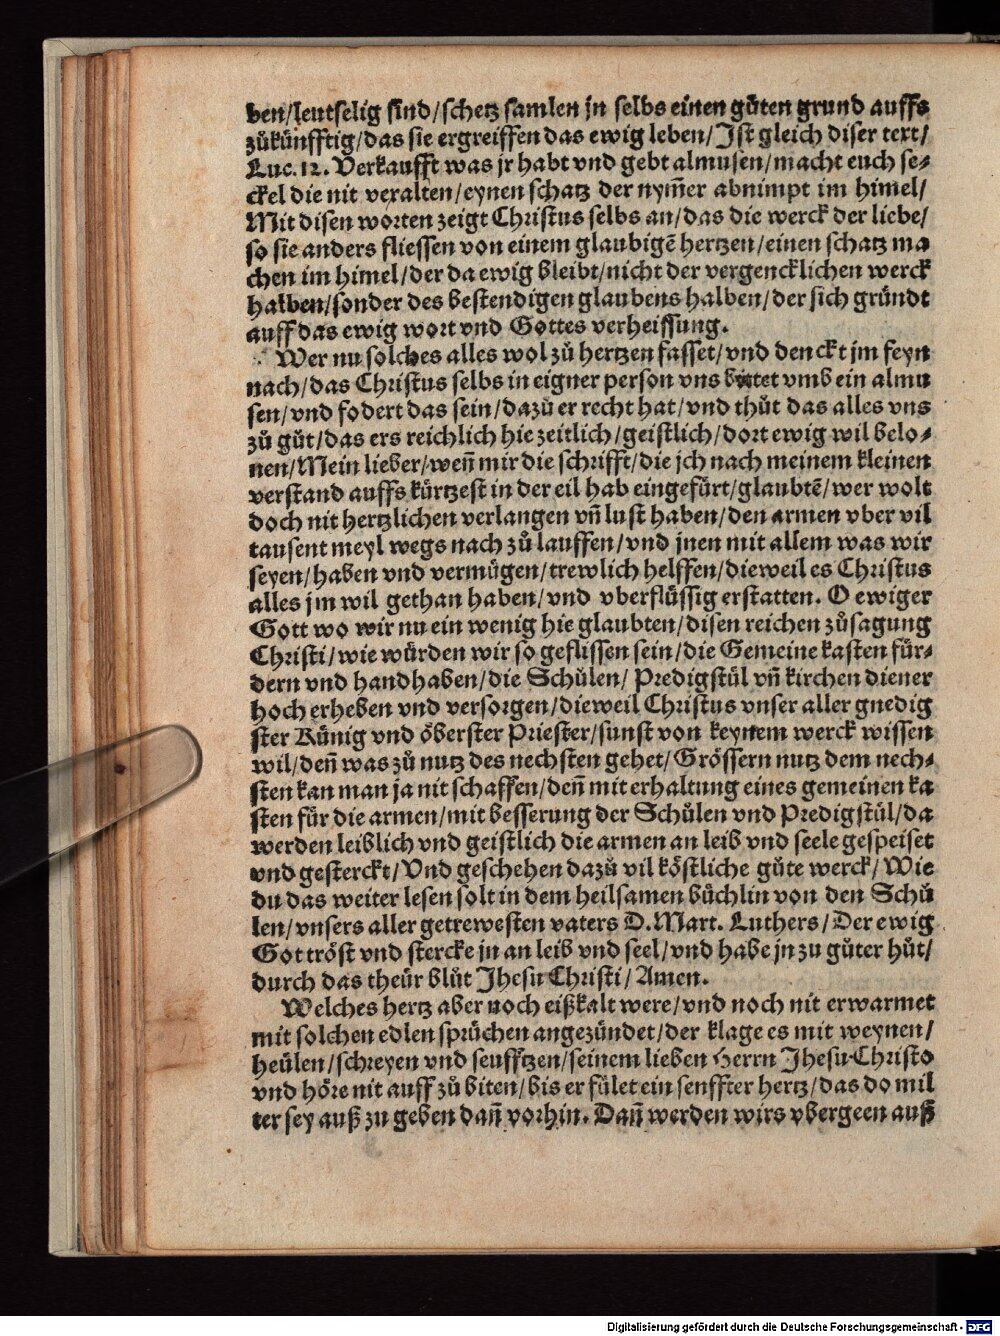 ben/leutselig sind/schetz samlen jn selbs einen gůten grund auffs
zůkünfftig/das sie ergreiffen das ewig leben/Ist gleich diser text/
Luc. 12. Verkaufft was jr habt vnd gebt almusen/macht euch se⸗
ckel die nit veralten/eynen schatz der nym̃er abnimpt im himel/
Mit disen worten zeigt Christus selbs an/das die werck der liebe/
so sie anders fliessen von einem glaubigẽ hertzen/einen schatz ma
chen im himel/der da ewig bleibt/nicht der vergencklichen werck
halben/sonder des bestendigen glaubens halben/der sich gründt
auff das ewig wort vnd Gottes verheissung.
Wer nu solches alles wol zů hertzen fasset/vnd denckt jm feyn
nach/das Christus selbs in eigner person vns bittet vmb ein almu
sen/vnd fodert das sein/dazů er recht hat/vnd thůt das alles vns
zů gůt/das ers reichlich hie zeitlich/geistlich/dort ewig wil belo⸗
nen/Mein lieber/weñ mir die schrifft/die jch nach meinem kleinen
verstand auffs kürtzest in der eil hab eingefürt/glaubtẽ/wer wolt
doch nit hertzlichen verlangen vñ lust haben/den armen vber vil
tausent meyl wegs nach zů lauffen/vnd jnen mit allem was wir
seyen/haben vnd vermügen/trewlich helffen/dieweil es Christus
alles jm wil gethan haben/vnd vberflüssig erstatten. O ewiger
Gott wo wir nu ein wenig hie glaubten/disen reichen zůsagung
Christi/wie würden wir so geflissen sein/die Gemeine kasten für⸗
dern vnd handhaben/die Schůlen/ Predigstůl vñ kirchen diener
hoch erheben vnd versorgen/dieweil Christus vnser aller gnedig
ster Künig vnd öberster Priester/sunst von keynem werck wissen
wil/deñ was zů nutz des nechsten gehet/Grössern nutz dem nech⸗
sten kan man ja nit schaffen/deñ mit erhaltung eines gemeinen ka
sten für die armen/mit besserung der Schůlen vnd Predigstůl/da
werden leiblich vnd geistlich die armen an leib vnd seele gespeiset
vnd gesterckt/Vnd geschehen dazů vil köstliche gůte werck/Wie
du das weiter lesen solt in dem heilsamen bůchlin von den Schů
len/vnsers aller getrewesten vaters D. Mart. Luthers/Der ewig
Got tröst vnd stercke jn an leib vnd seel/vnd habe jn zu gůter hůt/
durch das theür blůt Jhesu Christi/Amen.
Welches hertz aber noch eißkalt were/vnd noch nit erwarmet
mit solchen edlen sprüchen angezündet/der klage es mit weynen/
heülen/schreyen vnd seufftzen/seinem lieben Herrn Jhesu Christo
vnd höre nit auff zů biten/bis er fület ein senffter hertz/das do mil
ter sey auß zu geben dañ vorhin. Dañ werden wirs vbergeen auß
Digitalisierung gefördert durch die Deutsche Forschungsgemeinschaft - DFG